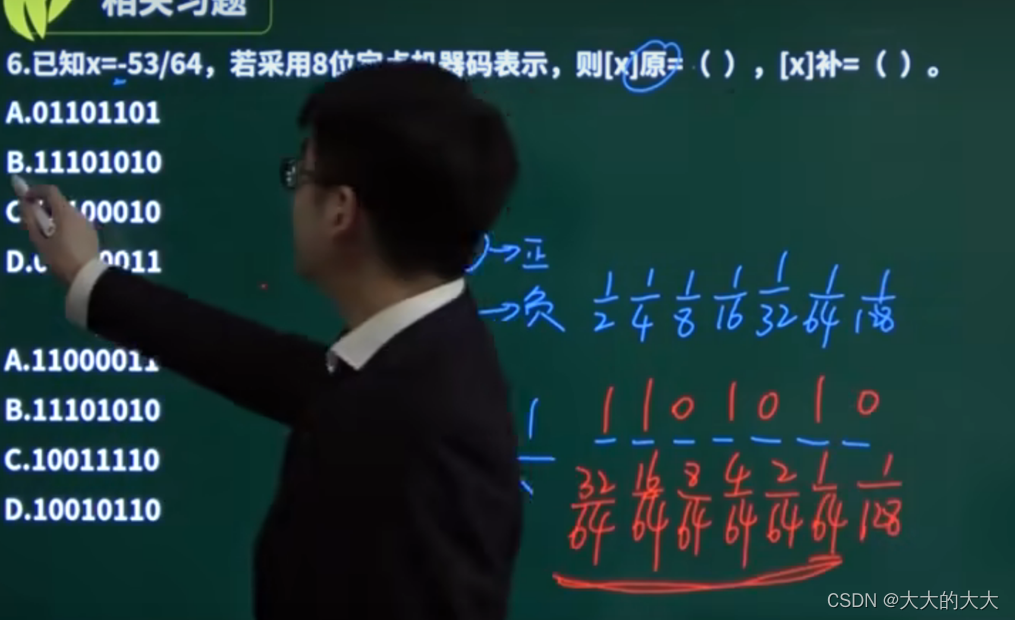 相关习题
6.已知x=-53/64，若采用8位定点机器码表示，则[x]原=（ ），[x]补=（ ）。
A.01101101
B.11101010
C. 00010
D.0 0011
→正
→负
1/2 1/4 1/8 1/16 1/32 1/64 1/128
1 1 1 0 1 0 1 0
32/64 16/64 8/64 4/64 2/64 1/64 1/128
A.11000011
B.11101010
C.10011110
D.10010110
CSDN @大大的大大